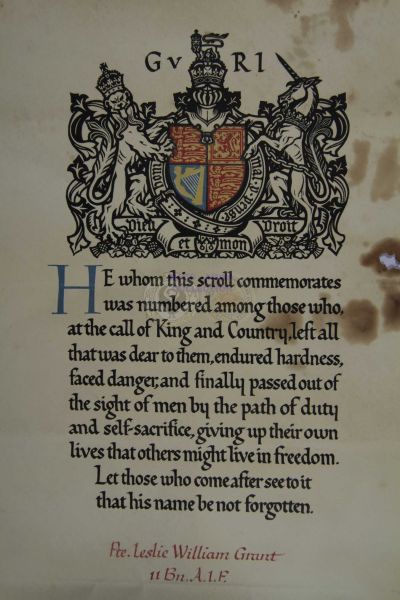 GV RI
Honi soit qui mal y pense
Dieu et mon Droit
HE whom this scroll commemorates
was numbered among those who,
at the call of King and Country, left all
that was dear to them, endured hardness,
faced danger, and finally passed out of
the sight of men by the path of duty
and self-sacrifice, giving up their own
lives that others might live in freedom.
Let those who come after see to it
that his name be not forgotten.
Pte. Leslie William Grant
11 Bn. A.I.F.